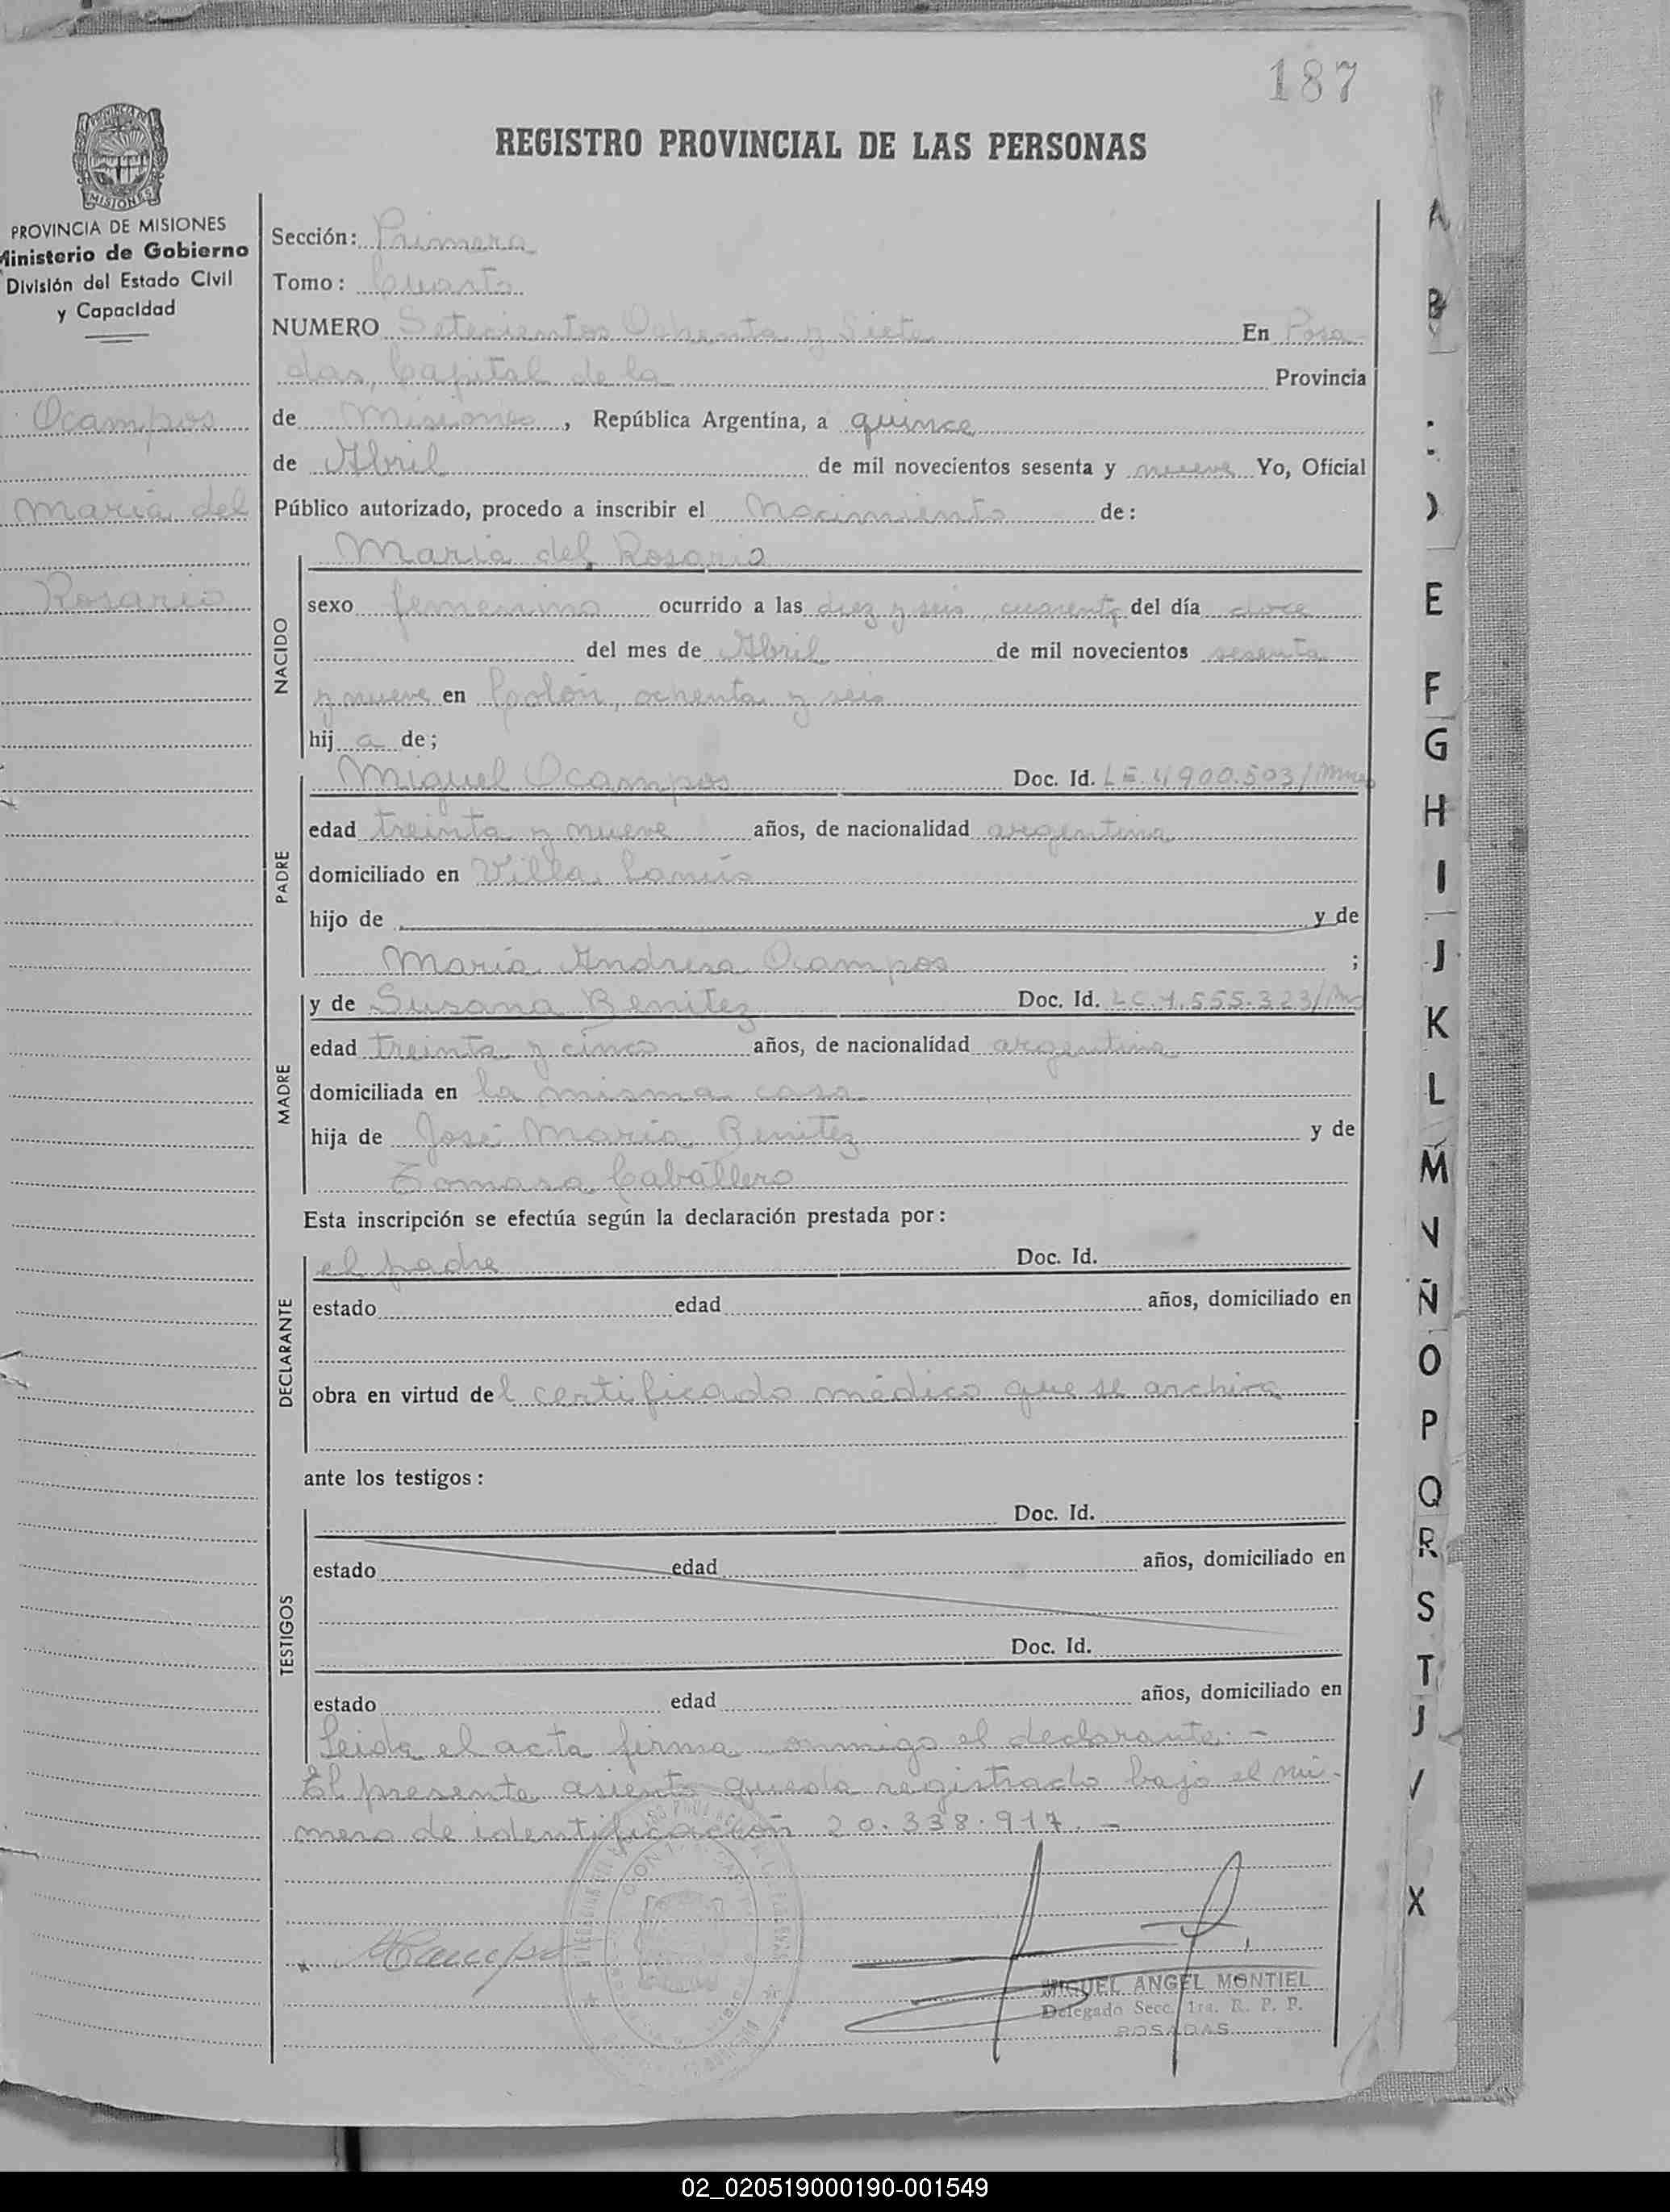 187
REGISTRO PROVINCIAL DE LAS PERSONAS
MISIONES
PROVINCIA DE MISIONES
Ministerio de Gobierno
División del Estado Civil
y Capacidad
Ocampos
María del
Rosario
Sección: Primera
Tomo: Cuarto
NUMERO Setecientos Ochenta y Siete En Posa
das, Capital de la Provincia
de Misiones, República Argentina, a quince
de Abril de mil novecientos sesenta y nueve Yo, Oficial
Público autorizado, procedo a inscribir el Nacimiento de:
NACIDO
María del Rosario
sexo femenino ocurrido a las diez y seis, cuarenta del día doce
del mes de Abril de mil novecientos sesenta
y nueve en Colón, ochenta y seis
hij a de;
PADRE
Miguel Ocampos Doc. Id. LE. 4.900.503/Mnes
edad treinta y nueve años, de nacionalidad argentina
domiciliado en Villa Lanús
hijo de y de
María Andresa Ocampos ;
MADRE
y de Susana Benitez Doc. Id. LC. 1.555.323/
edad treinta y cinco años, de nacionalidad argentina
domiciliada en la misma casa
hija de José María Benitez y de
Tomasa Caballero
Esta inscripción se efectúa según la declaración prestada por:
DECLARANTE
el padre Doc. Id.
estado edad años, domiciliado en
obra en virtud del certificado médico que se archiva
ante los testigos:
TESTIGOS
Doc. Id.
estado edad años, domiciliado en
Doc. Id.
estado edad años, domiciliado en
Leida el acta firma conmigo el declarante.-
El presente asiento queda registrado bajo el nú-
mero de identificación 20.338.917.-
MIGUEL ANGEL MONTIEL
Delegado Secc. 1ra. R. P. P.
POSADAS
A
B
D
E
F
G
H
I
J
K
L
M
N
Ñ
O
P
Q
R
S
T
X
02_020519000190-001549